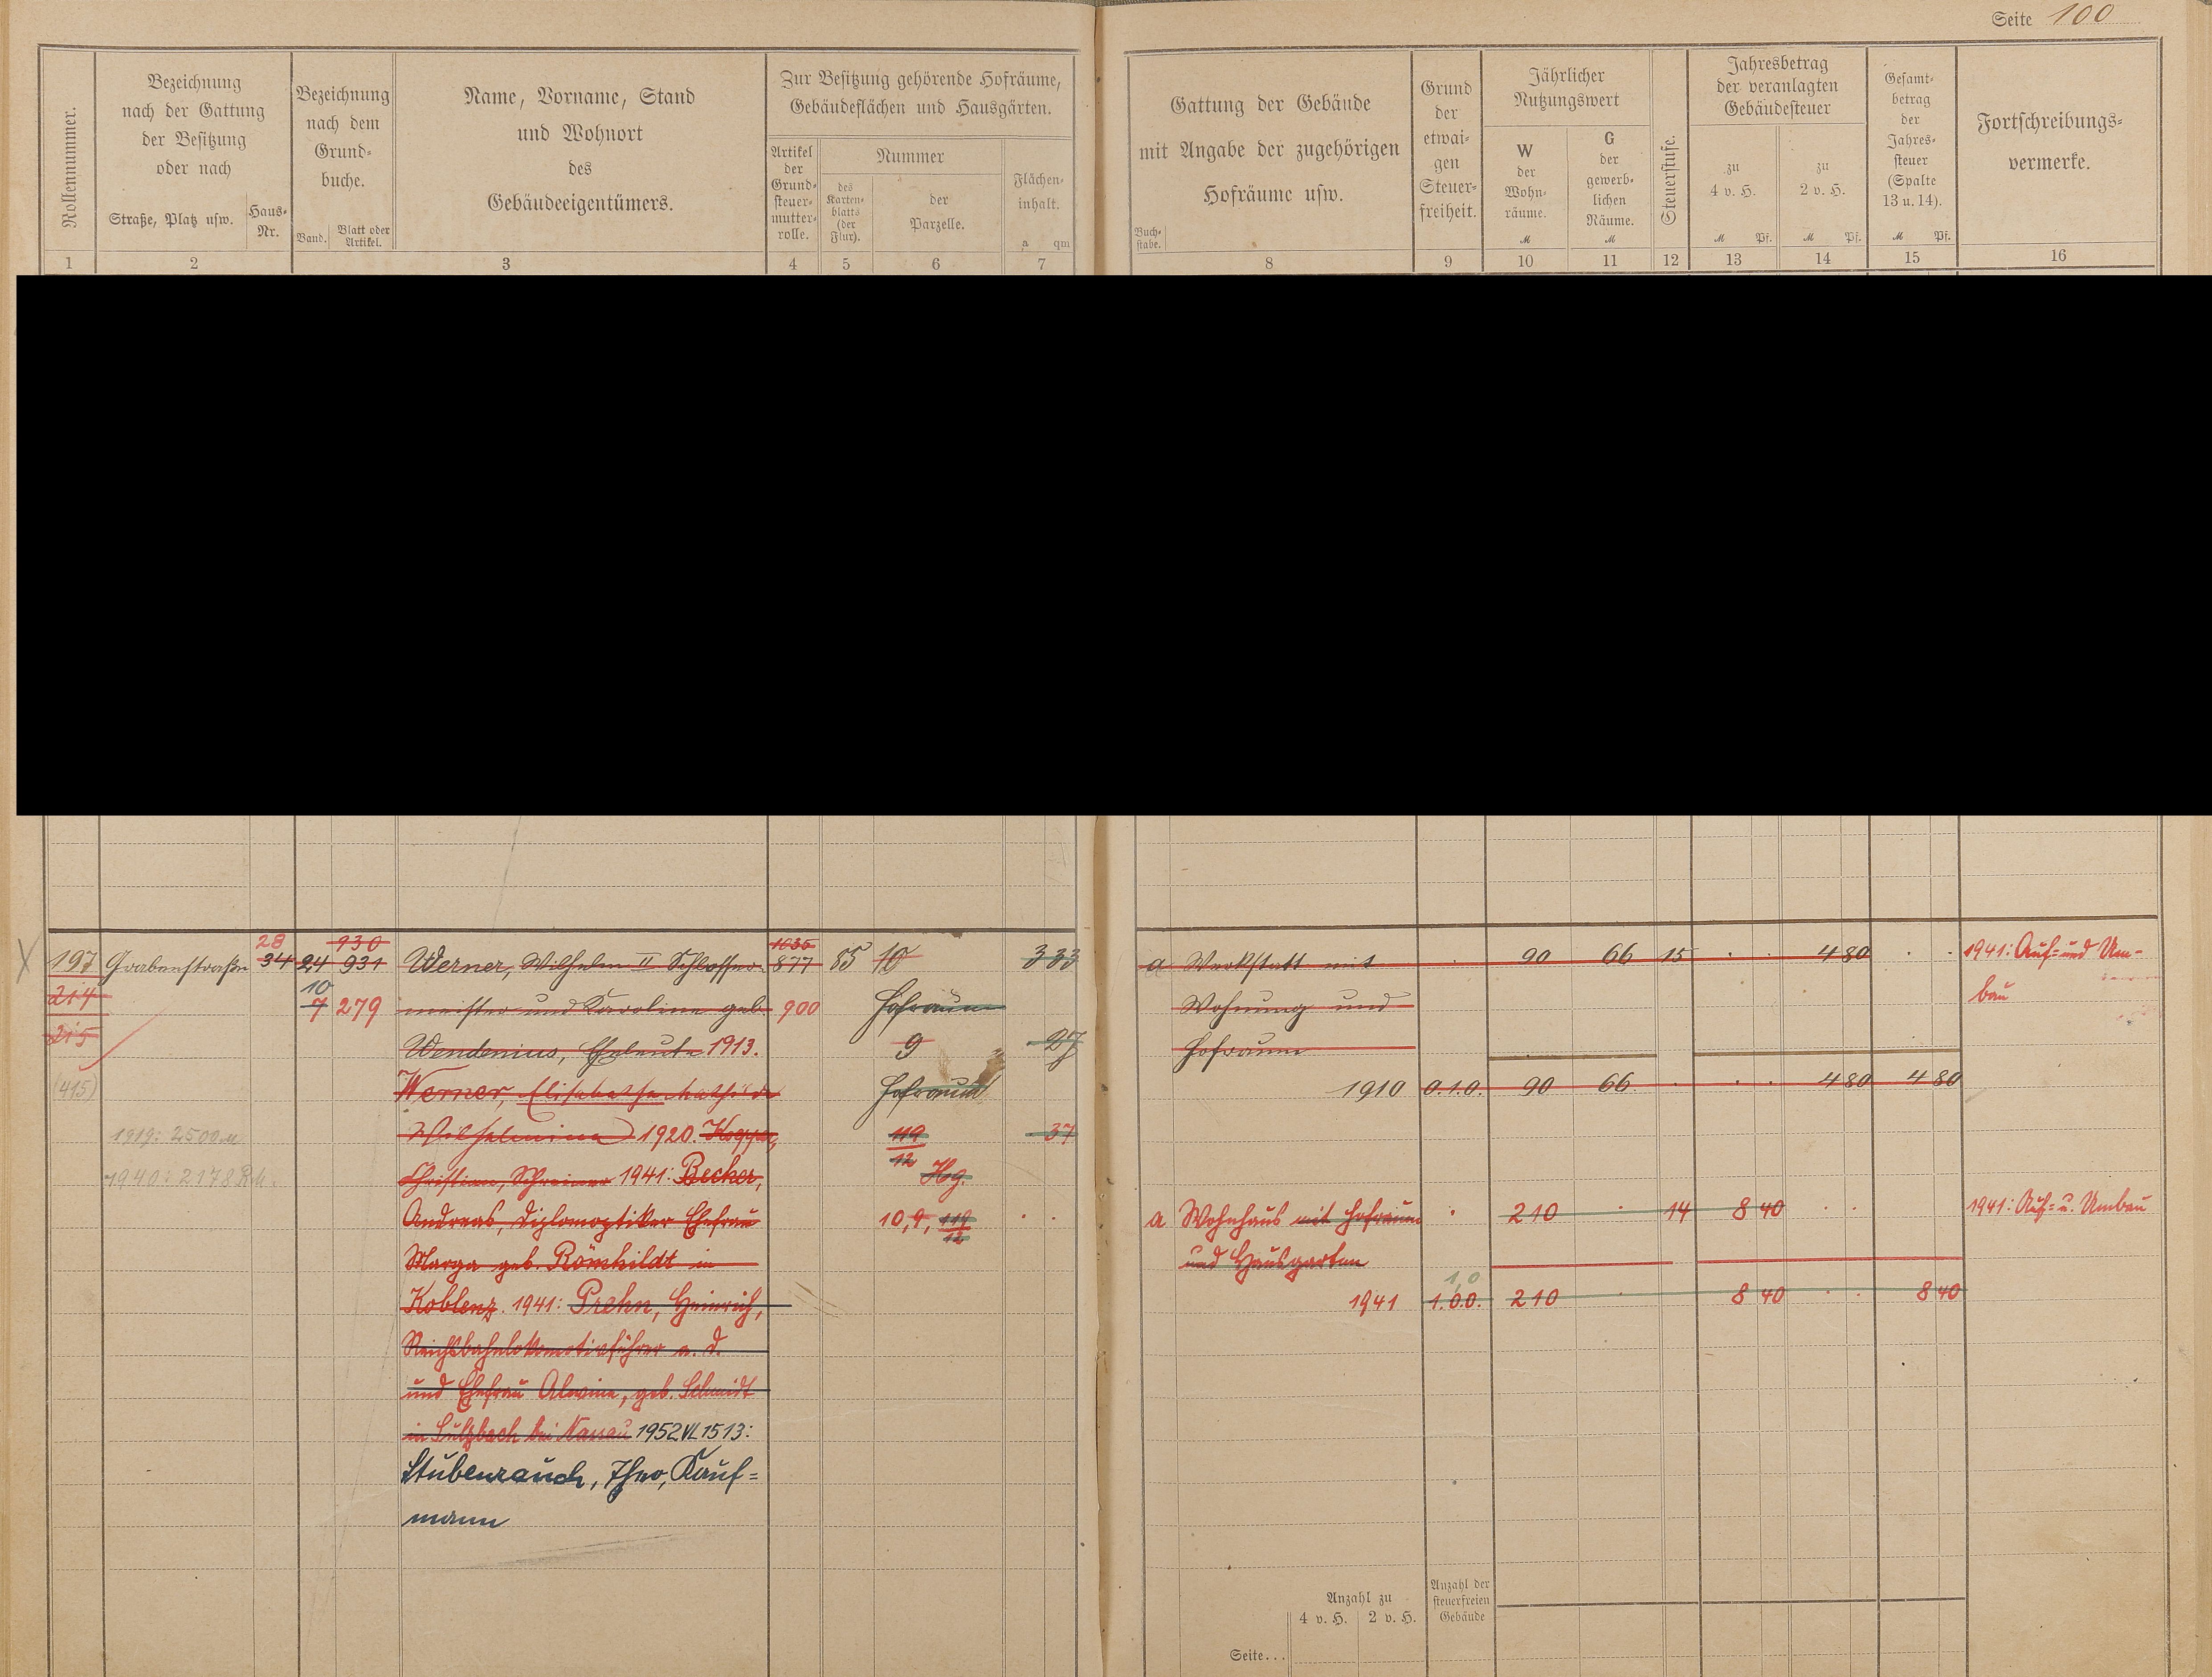 Seite 100
Rollennummer.
Bezeichnung
nach der Gattung
der Besitzung
oder nach
Straße, Platz usw.
Haus-
Nr.
Bezeichnung
nach dem
Grund-
buche.
Band.
Blatt oder
Artikel.
Name, Vorname, Stand
und Wohnort
des
Gebäudeeigentümers.
Zur Besitzung gehörende Hofräume,
Gebäudeflächen und Hausgärten.
Artikel
der
Grund-
steuer-
mutter-
rolle.
Nummer
des
Karten-
blatts
(der
Flur).
der
Parzelle.
Flächen-
inhalt.
a qm
Gattung der Gebäude
mit Angabe der zugehörigen
Hofräume usw.
Buch-
stabe.
Grund
der
etwai-
gen
Steuer-
freiheit.
Jährlicher
Nutzungswert
W
der
Wohn-
räume.
M
G
der
gewerb-
lichen
Räume.
M
Steuerstufe.
Jahresbetrag
der veranlagten
Gebäudesteuer
zu
4 v. H.
M Pf.
zu
2 v. H.
M Pf.
Gesamt-
betrag
der
Jahres-
steuer
(Spalte
13 u. 14).
M Pf.
Fortschreibungs-
vermerke.
1 2 3 4 5 6 7 8 9 10 11 12 13 14 15 16
X
197
214
215
(415)
Grabenstraße
28
34
1919: 2500 M
1940: 2178 RM.
930
24 931
10
7 279
Werner, Wilhelm II Schlosser-
meister und Karoline geb.
Wendenius, Eheleute 1913.
Werner, Elisabetha Mathilde
Wilhelmina 1920.
Christian, Schreiner 1941: Becker,
Andreas, Diplomoptiker Ehefrau
Marga geb. Römhildt in
Koblenz. 1941: Prehn, Heinrich,
Reichsbahnlokomotivführer a. D.
und Ehefrau Alwine, geb. Schmidt
in Sulzbach bei Nassau 1952 VL 1513:
Stubenrauch, Theo, Kauf-
mann
1035
877
900
85
10
Hofraum
9
Hofraum
119
12
Hg.
10, 9, 119
12
3 33
27
37
a Werkstatt mit
Wohnung und
Hofraum
90 66 15 4 80
1910 0.1.0. 90 66 4 80 4 80
1941: Auf- und Um-
bau
a Wohnhaus mit Hofraum
und Hausgarten
210 14 8 40
1941: Auf- u. Umbau
1,0
1941 1.0.0. 210 8 40 8 40
Anzahl zu
4 v. H. 2 v. H.
Anzahl der
steuerfreien
Gebäude
Seite...